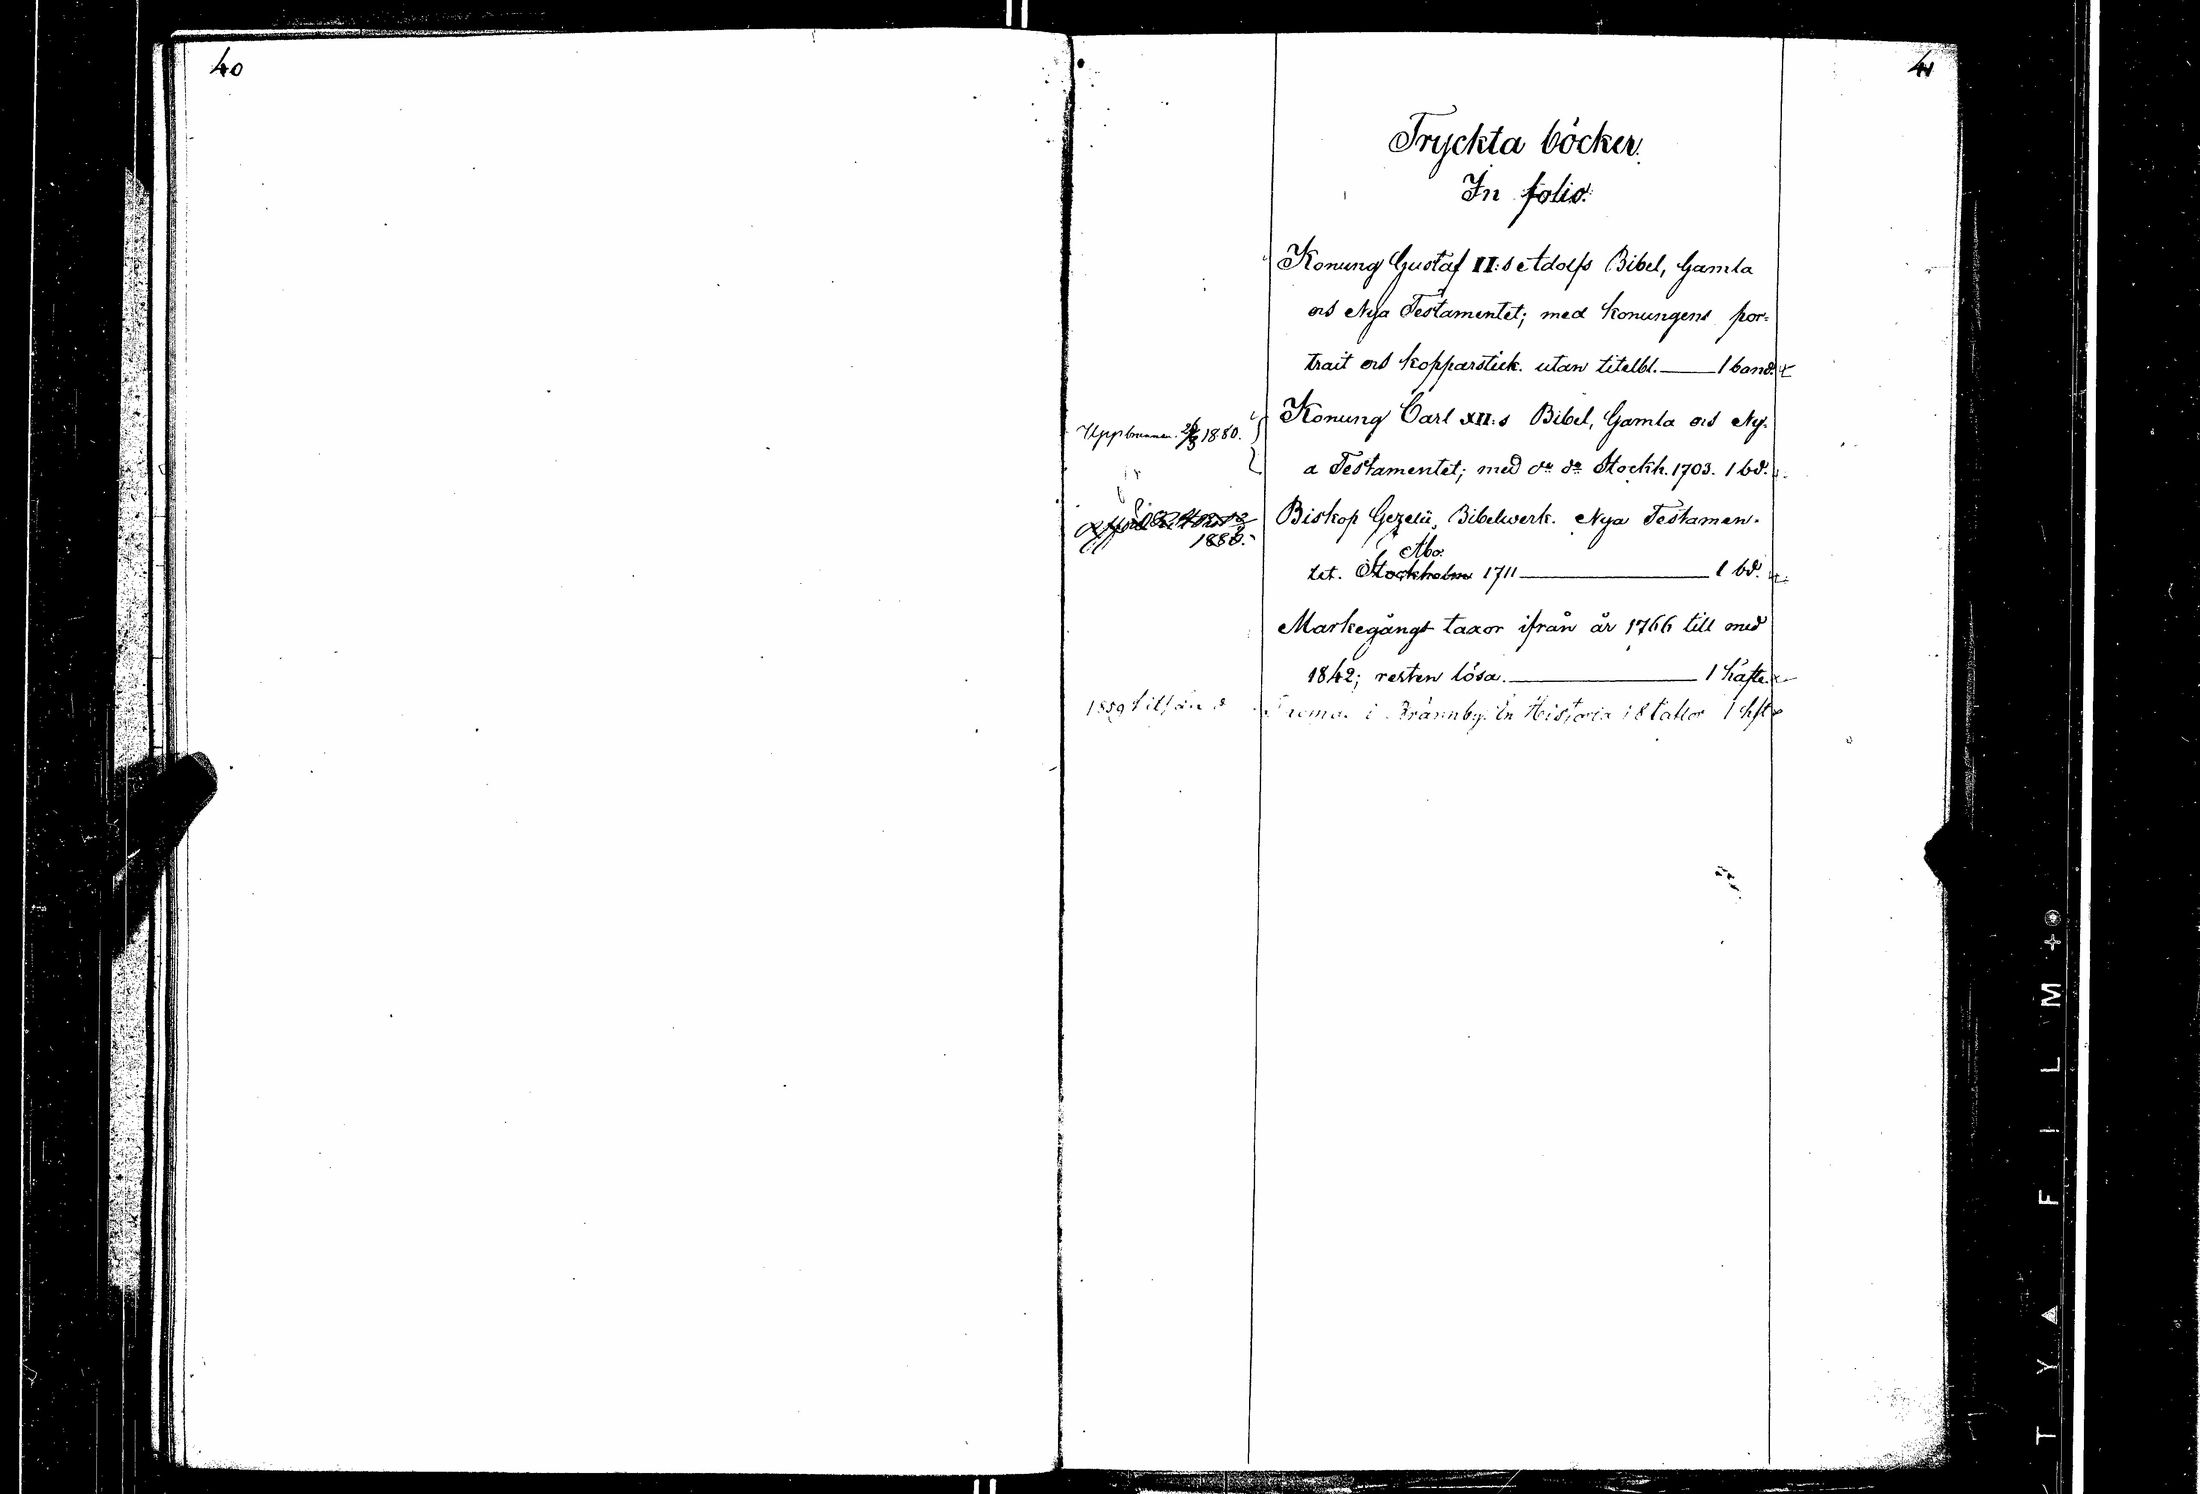 40
41
Tryckta böcker.
In folio.
Konung Gustaf II:s Adolfs Bibel, Gamla
och Nya Testamentet; med konungens por-
trait och kopparstick. utan titelbl. 1 band.
Konung Carl XII:s Bibel, Gamla och Ny-
Uppbrunnen 1880.
a Testamentet; med do do Stockh. 1703. 1 bd.
Biskop Gezelii, Bibelwerk. Nya Testamen-
1880.
Åbo.
tet. Stockholm 1711 1 bd.
Markegångs taxor ifrån år 1766 till med
1842; resten lösa. 1 häfte.
1859 i Brännby. En Historia i 8 taflor 1 hft
T Y A F I L M